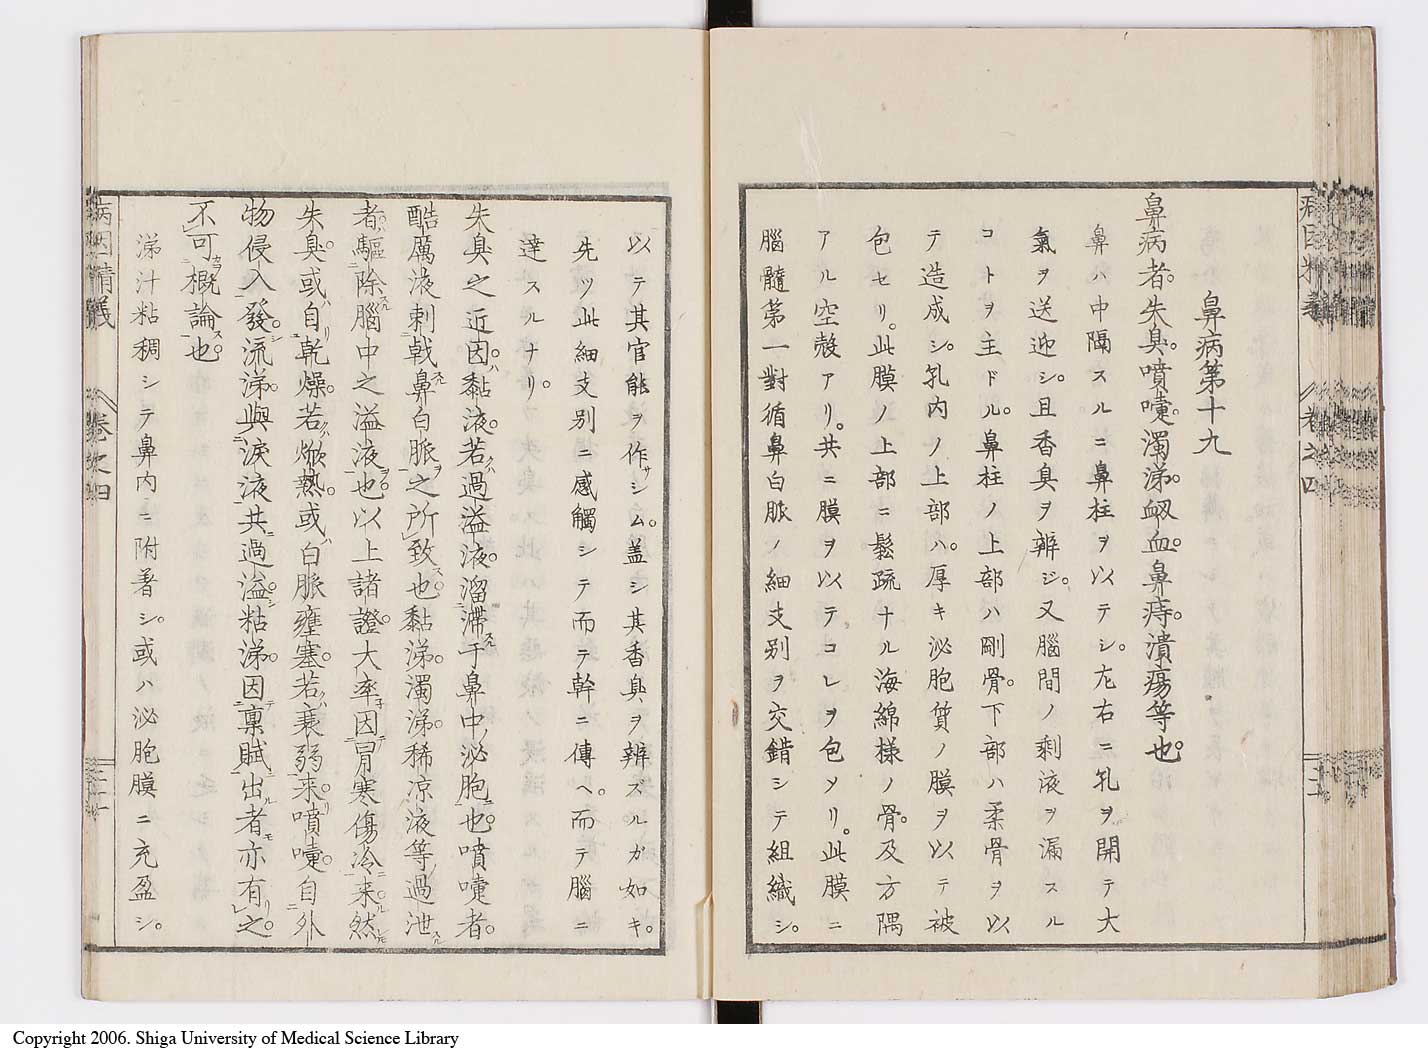 鼻病第十九
鼻病者。失臭。噴嚔。濁涕。衂血。鼻痔。潰瘍等也。
鼻ハ中隔スルニ鼻柱ヲ以テシ。左右ニ孔ヲ開テ大
氣ヲ送迎シ。且香臭ヲ辨ジ。又腦間ノ剩液ヲ漏スル
コトヲ主ドル。鼻柱ノ上部ハ剛骨。下部ハ柔骨ヲ以
テ造成シ。孔内ノ上部ハ。厚キ泌胞質ノ膜ヲ以テ被
包セリ。此膜ノ上部ニ鬆疏ナル海綿様ノ骨。及方隅
アル空殼アリ。共ニ膜ヲ以テコレヲ包メリ。此膜ニ
腦髓第一對循鼻白脈ノ細支別ヲ交錯シテ組織シ。
以テ其官能ヲ作サシム。蓋シ其香臭ヲ辨スルガ如キ。
先ツ此細支別ニ感觸シテ而テ幹ニ傳ヘ。而テ腦ニ
達スルナリ。
失臭之近因ハ黏液。若クハ過溢液。溜滯スル于鼻中ノ泌胞ニ也。噴嚔者。
酷厲液刺戟スル鼻白脈ヲ之所致ス也。黏涕。濁涕。稀凉液等ノ過泄スル
者ハ。驅除スル腦中之溢液ヲ也。以上諸證。大率因冒寒傷冷ニ来ル。然レモ
失臭。或ハ自リ乾燥。若クハ焮熱。或ハ白脈壅塞。若クハ衰弱。来リ。噴嚔。自外
物侵入發シ。流涕。與淚液共ニ過溢シ。粘涕。因テ稟賦ニ出ル者モ亦有リ之。
不可概論ス也
涕汁粘稠シテ鼻内ニ附著シ。或ハ泌胞膜ニ充盈シ。
病因精義
卷之四